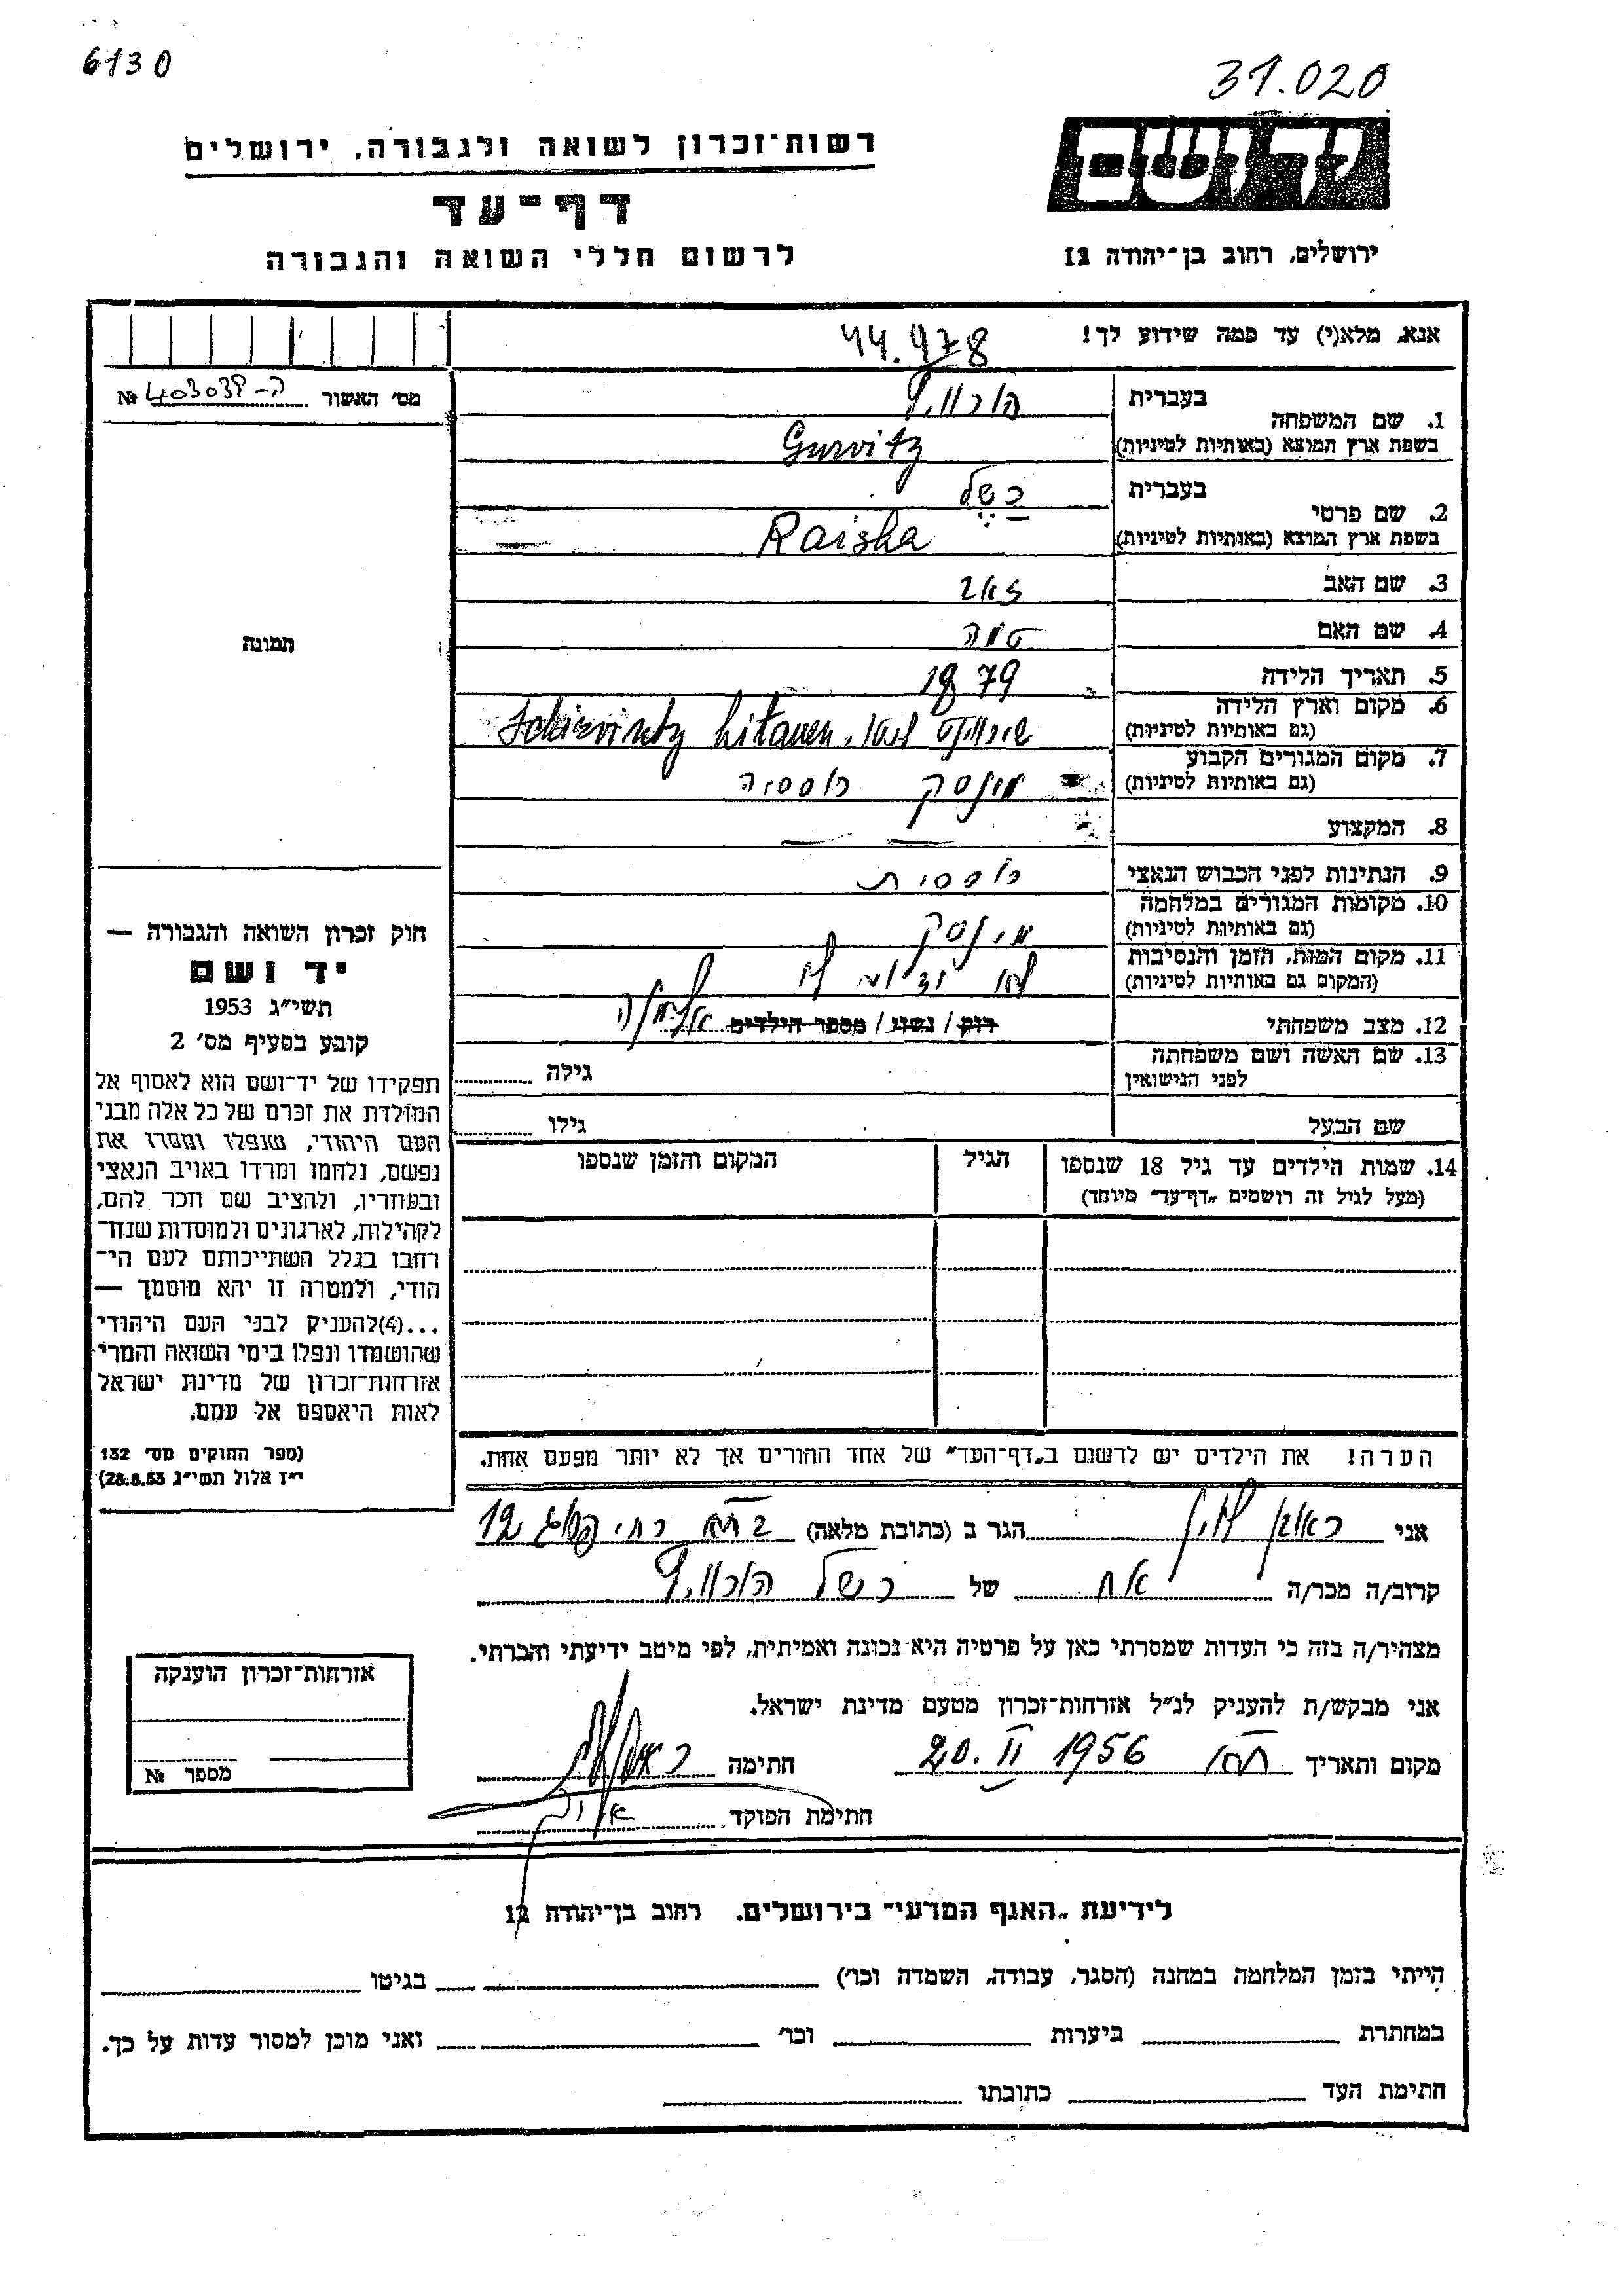 6130
31.020
רשות־זכרון לשואה ולגבורה, ירושלים
יד ושם
דף־עד
לרשום חללי השואה והגבורה
ירושלים, רחוב בן־יהודה 12
אנא, מלא(י) עד כמה שידוע לך!
44.978
מס' האשור № ה-403038
1. שם המשפחה
בעברית הורוויץ
בשפת ארץ המוצא (באותיות לטיניות) Gurvitz
2. שם פרטי
בעברית רשל
בשפת ארץ המוצא (באותיות לטיניות) Raisha
3. שם האב זאב
4. שם האם
5. תאריך הלידה 1879
6. מקום וארץ הלידה
(גם באותיות לטיניות) Schirvintz Litauen
7. מקום המגורים הקבוע
(גם באותיות לטיניות) מינסק רוסיה
8. המקצוע — —
9. הנתינות לפני הכבוש הנאצי רוסית
10. מקומות המגורים במלחמה
(גם באותיות לטיניות) מינסק
11. מקום המות, הזמן והנסיבות
(המקום גם באותיות לטיניות) לא
12. מצב משפחתי רוק / נשוי / מספר הילדים אלמנה
13. שם האשה ושם משפחתה
לפני הנישואין
גילה
שם הבעל
גילו
14. שמות הילדים עד גיל 18 שנספו
(מעל לגיל זה רושמים „דף־עד” מיוחד)
הגיל
המקום והזמן שנספו
הערה! את הילדים יש לרשום ב„דף־העד” של אחד ההורים אך לא יותר מפעם אחת.
תמונה
חוק זכרון השואה והגבורה —
יד ושם
תשי״ג 1953
קובע בסעיף מס' 2
תפקידו של יד־ושם הוא לאסוף אל
המולדת את זכרם של כל אלה מבני
העם היהודי, שנפלו ומסרו את
נפשם, נלחמו ומרדו באויב הנאצי
ובעוזריו, ולהציב שם וזכר להם,
לקהילות, לארגונים ולמוסדות שנח־
רבו בגלל השתייכותם לעם הי־
הודי, ולמטרה זו יהא מוסמך —
...(4)להעניק לבני העם היהודי
שהושמדו ונפלו בימי השואה והמרי
אזרחות־זכרון של מדינת ישראל
לאות היאספם אל עמם.
(ספר החוקים מס' 132
י״ז אלול תשי״ג 28.8.53)
אני ראובן הגר ב (כתובת מלאה) 12
קרוב/ה מכר/ה אח של רשל הורוויץ
מצהיר/ה בזה כי העדות שמסרתי כאן על פרטיה היא נכונה ואמיתית, לפי מיטב ידיעתי והכרתי.
אני מבקש/ת להעניק לנ״ל אזרחות־זכרון מטעם מדינת ישראל.
מקום ותאריך 20. II 1956 חתימה
חתימת הפוקד
אזרחות־זכרון הוענקה
מספר №
לידיעת „האגף המדעי” בירושלים, רחוב בן־יהודה 12
הייתי בזמן המלחמה במחנה (הסגר, עבודה, השמדה וכו') בגיטו
במחתרת ביערות וכו' ואני מוכן למסור עדות על כך.
חתימת העד כתובתו